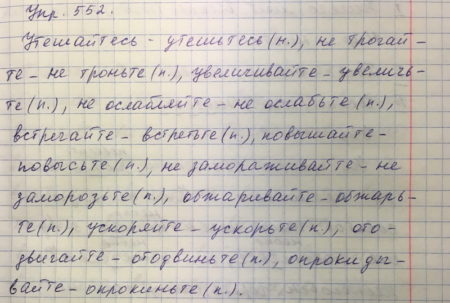 Упр. 552.
Утешайтесь - утешьтесь (н.), не трогай-
те - не троньте (п.), увеличивайте - увеличь-
те (п.), не ослабляйте - не ослабьте (п.),
встречайте - встретьте (п.), повышайте -
повысьте (п.), не замораживайте - не
заморозьте (п.), обжаривайте - обжарь-
те (п.), ускоряйте - ускорьте (п.), ото-
двигайте - отодвиньте (п.), опрокиды-
вайте - опрокиньте (п.).